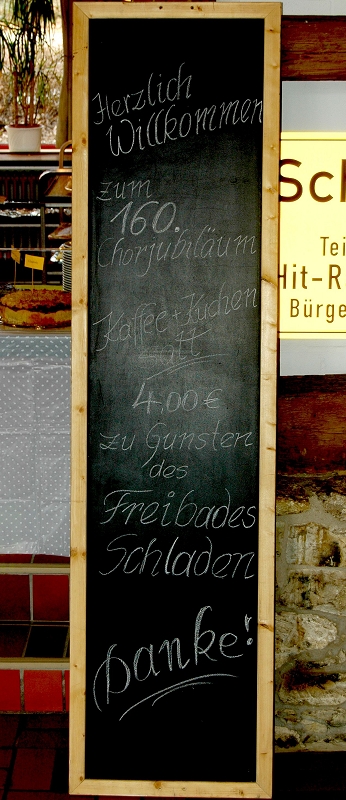 Herzlich
Willkommen
zum
160.
Chorjubiläum
Kaffee + Kuchen
satt
4,00 €
zu Gunsten
des
Freibades
Schladen
Danke!
Sch
Tei
Hit-R
Bürge